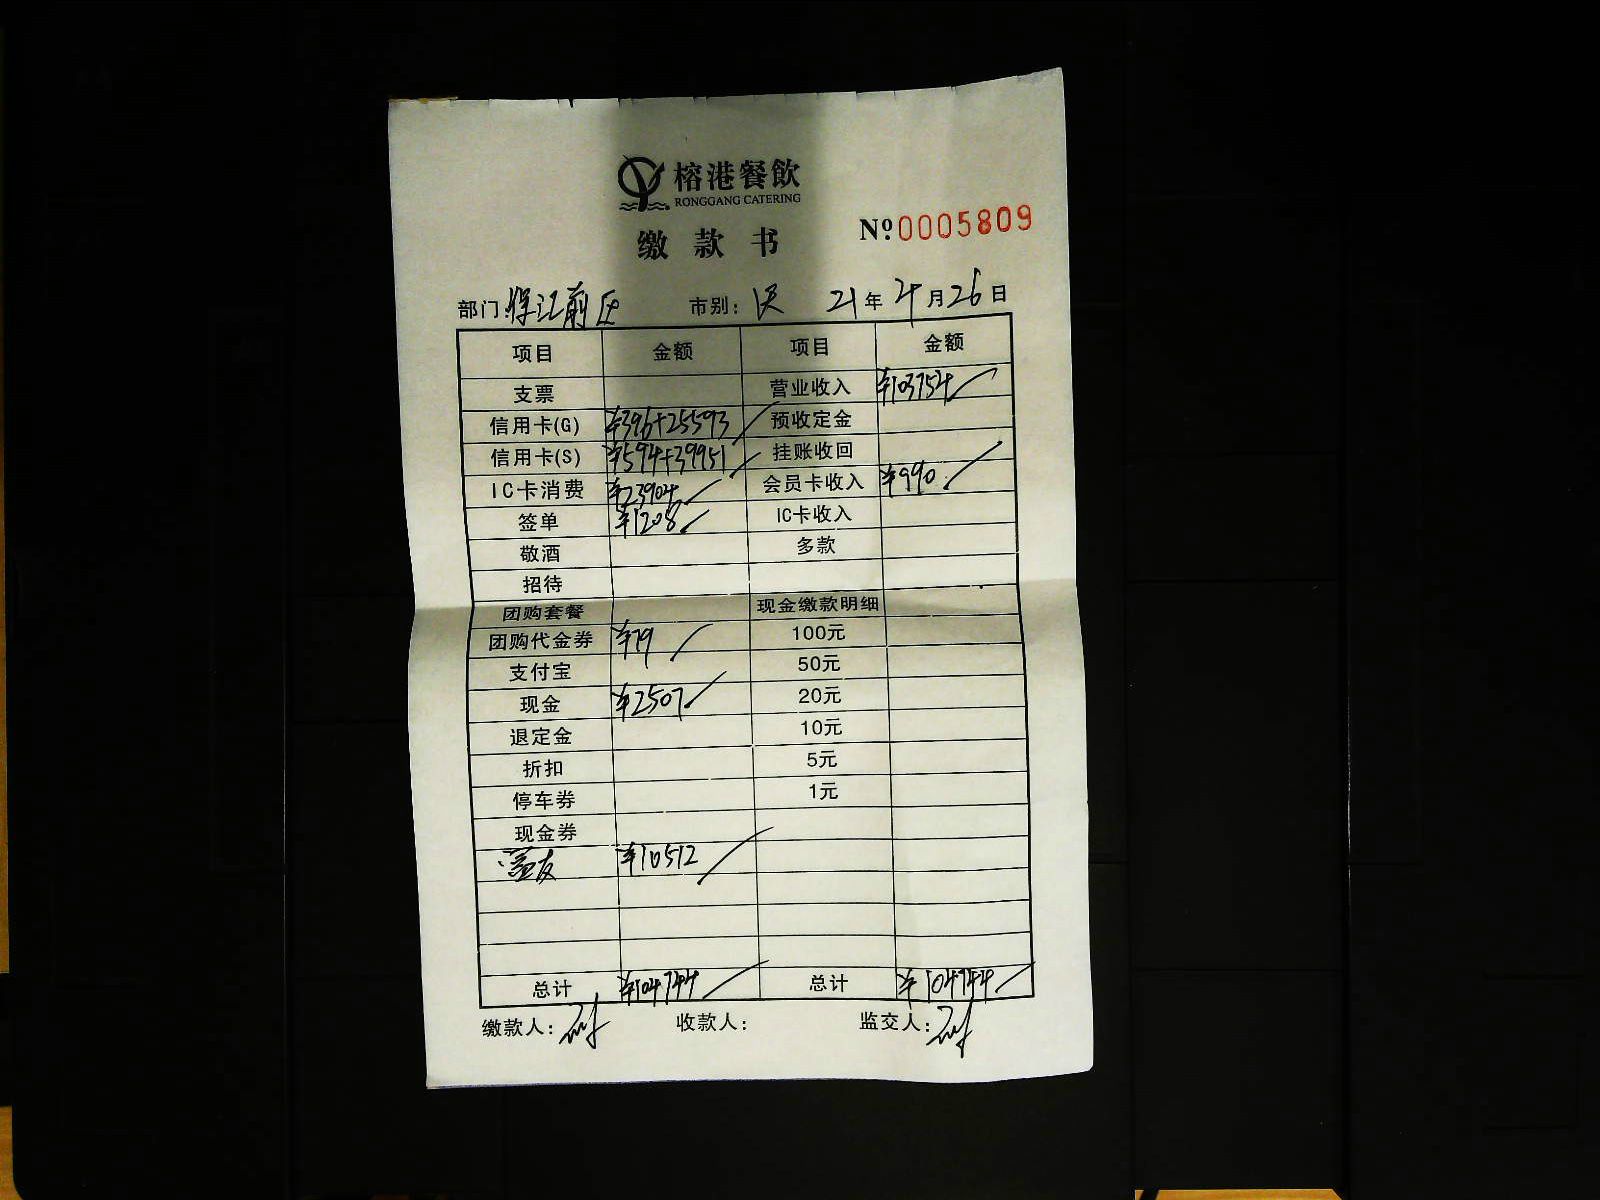 榕港餐飲
RONGGANG CATERING
缴款书 №0005809
部门 江前区 市别: 21年4月26日
项目 金额 项目 金额
支票 营业收入 ¥103754
信用卡(G) ¥396+25593 预收定金
信用卡(S) ¥594+39951 挂账收回
IC卡消费 ¥23904 会员卡收入 ¥990
签单 ¥1208 IC卡收入
敬酒 多款
招待
团购套餐 现金缴款明细
团购代金券 ¥79 100元
支付宝 50元
现金 ¥2507 20元
退定金 10元
折扣 5元
停车券 1元
现金券
¥10512
总计 ¥104744 总计 ¥104744
缴款人: 收款人: 监交人: